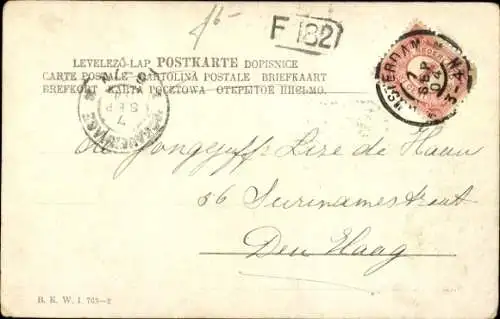 F 182
LEVELEZŐ-LAP POSTKARTE DOPISNICE
CARTE POSTALE CARTOLINA POSTALE BRIEFKAART
BREFKORT KARTA POCZTOWA ОТКРЫТОЕ ПИСЬМО.
AMSTERDAM
7
SEP
04
7
SEP
'S GRAVENHAGE
Jongejuffr Lize de Haan
56 Surinamestraat
Den Haag
B. K. W. I. 765-2